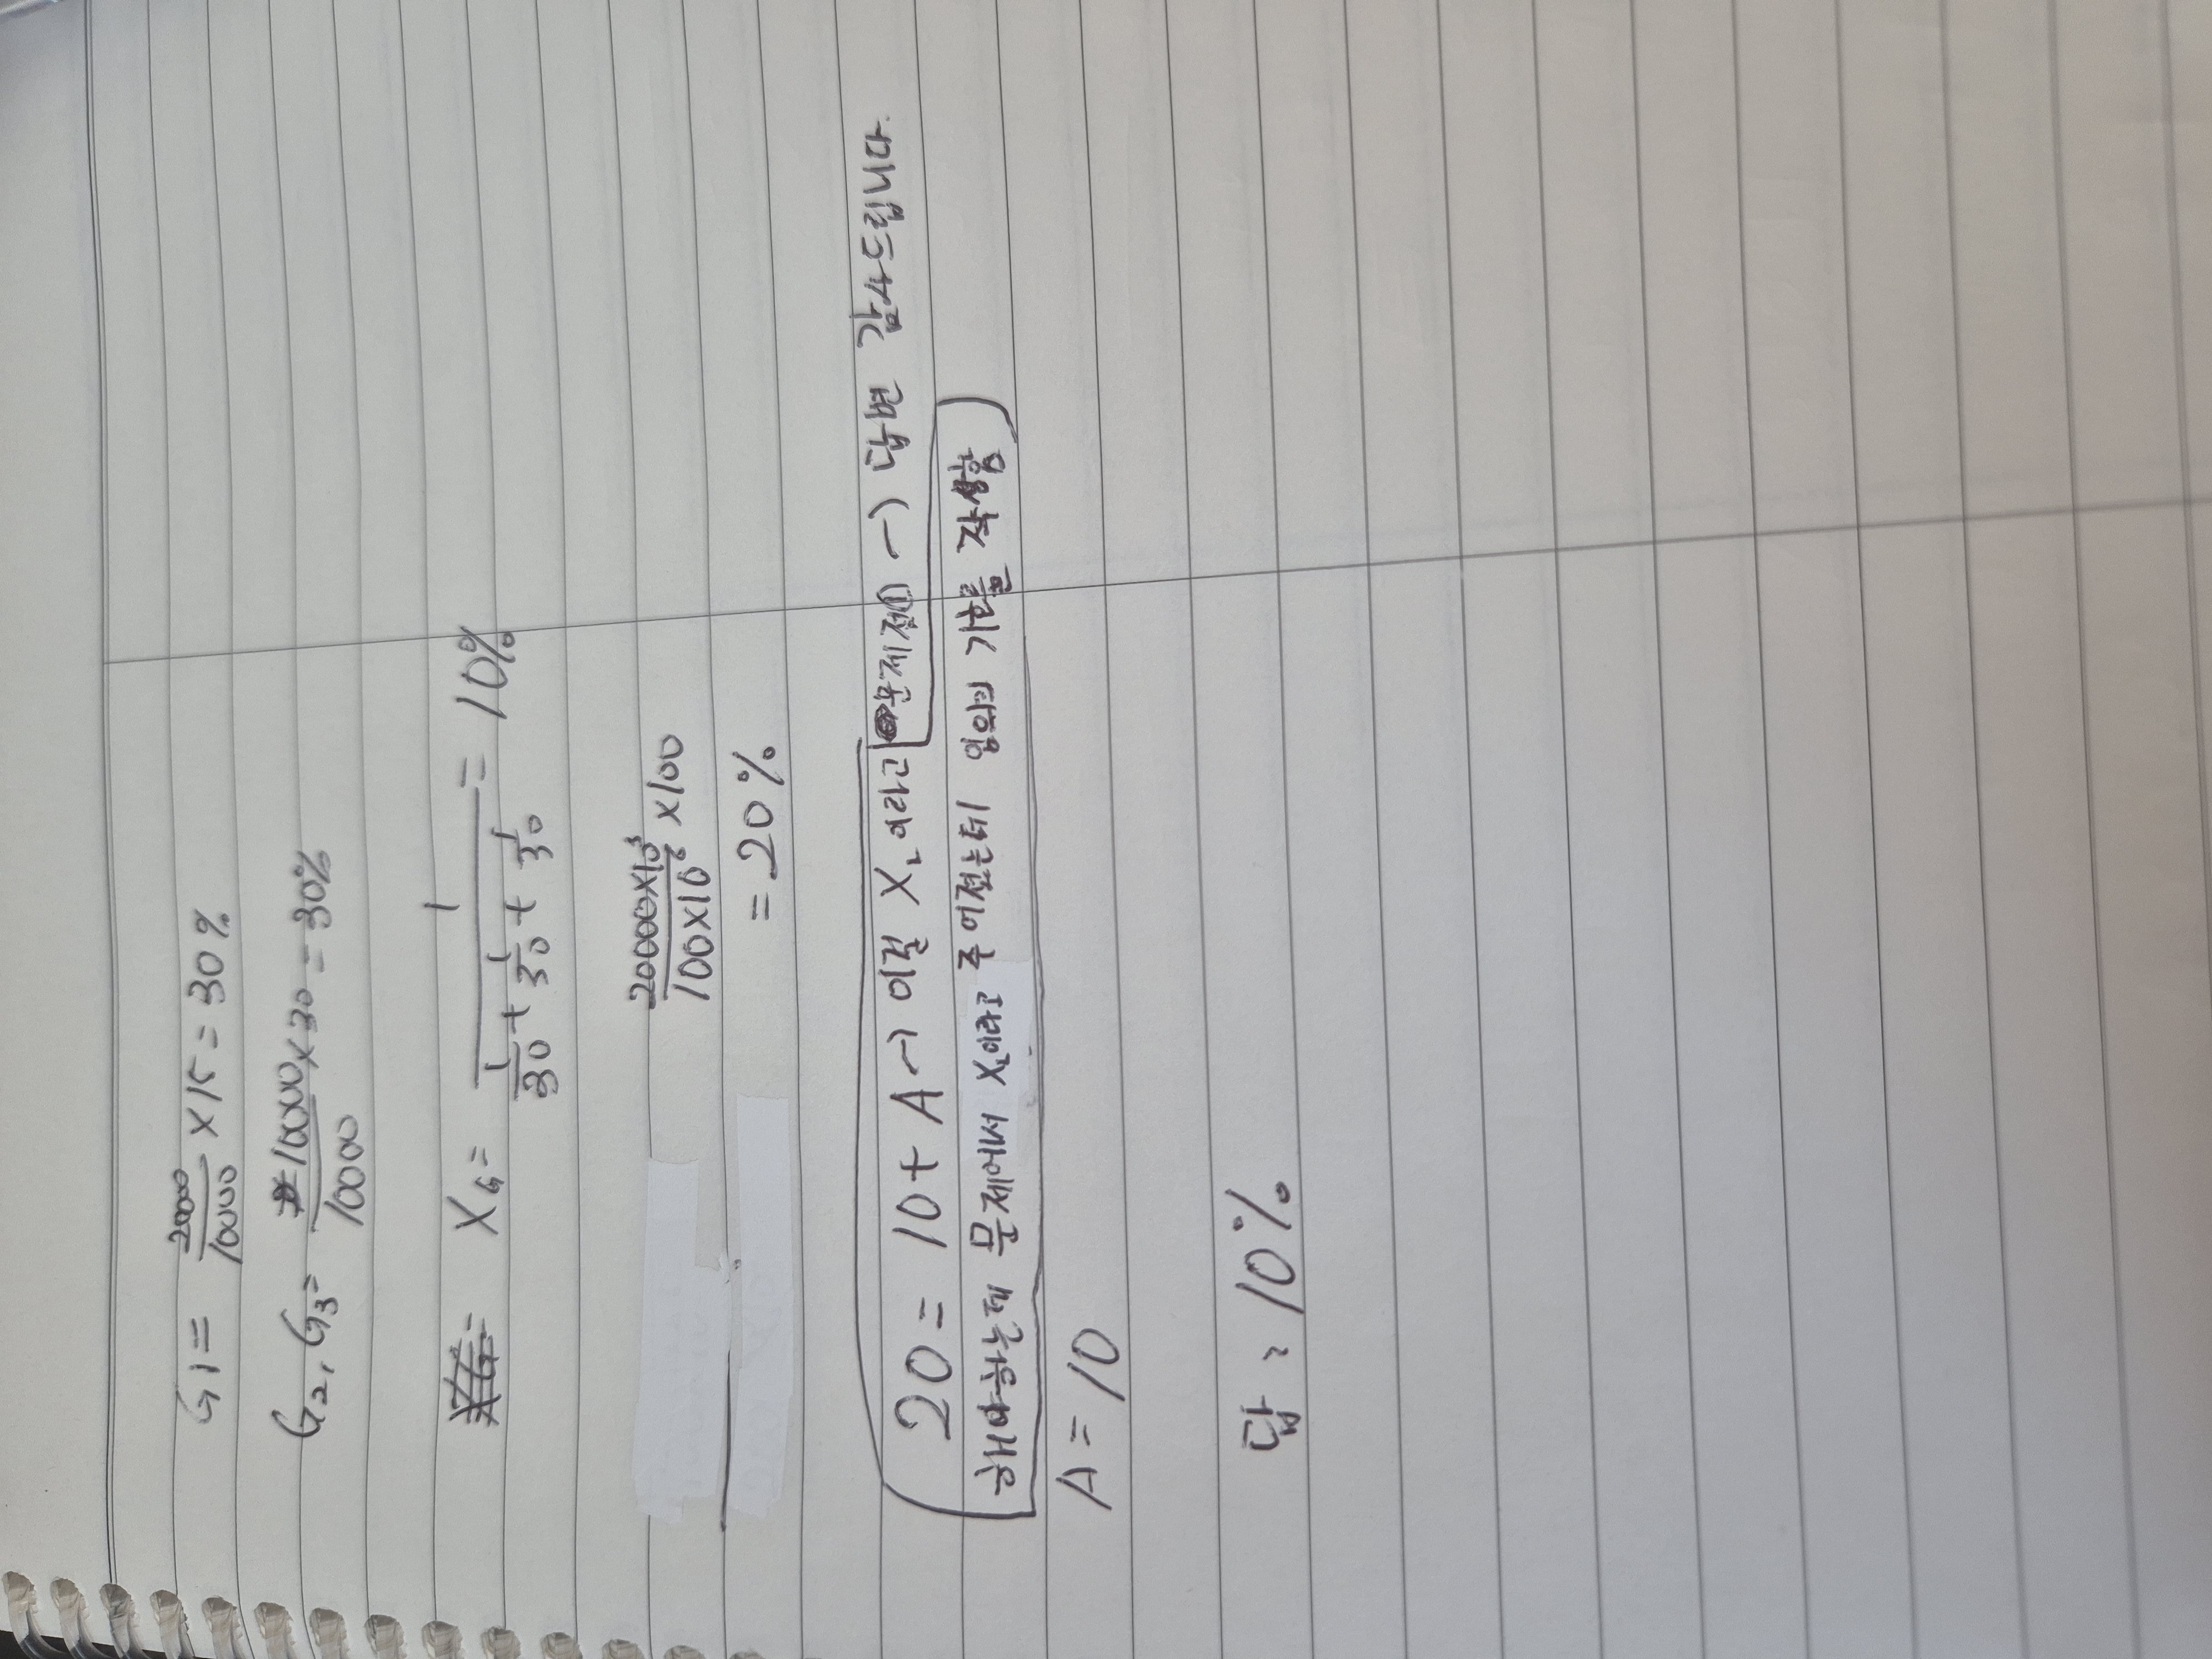 G1 = 20000/10000 × 15 = 30%
G2, G3 = 10000/10000 × 30 = 30%
XG = 1/(1/30 + 1/30 + 1/30) = 10%
20000×10³/100×10⁶ × 100
= 20%
20 = 10 + A → 이걸 XL이라고 문제점① → 답변 감사드립니다
해야하는데 문제에서 XL이라고 주어졌는데 임의의 기호를 작성함
A = 10
답 : 10%